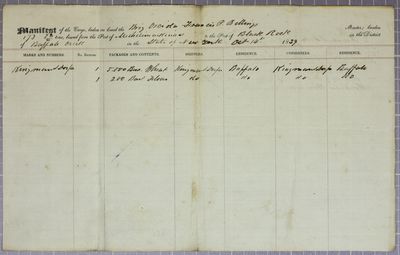 Manifest of the Cargo, laden on board the Brig Oneida Francis P. Billings Master, burden
173 tons, bound from the Port of Michilimackinac to the Port of Black Rock in the District
of Buffalo Creek in the State of New York Oct 14th 1839
MARKS AND NUMBERS. No. Entries. PACKAGES AND CONTENTS. SHIPPERS. RESIDENCE. CONSIGNEES. RESIDENCE.
Kingman & Durfee 1 5.500 Bus. Wheat Kingman & Durfee Buffalo Kingman & Durfee Buffalo
1 200 Barl Flour do do do do